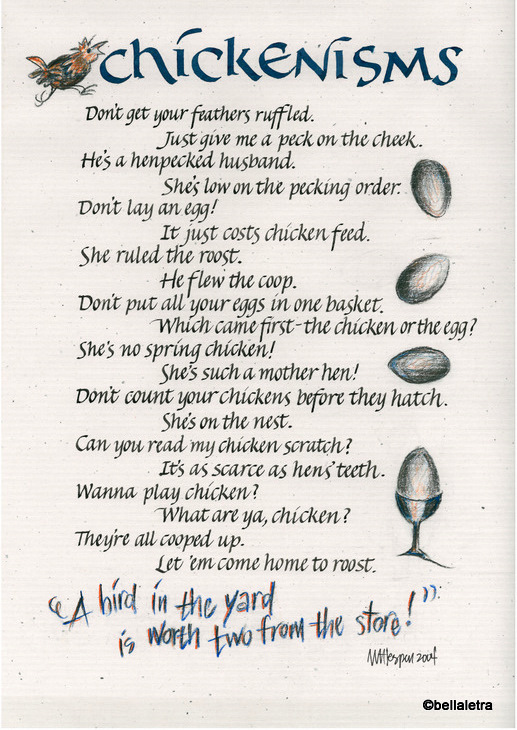 chickenisms
Don't get your feathers ruffled.
Just give me a peck on the cheek.
He's a henpecked husband.
She's low on the pecking order.
Don't lay an egg!
It just costs chicken feed.
She ruled the roost.
He flew the coop.
Don't put all your eggs in one basket.
Which came first-the chicken or the egg?
She's no spring chicken!
She's such a mother hen!
Don't count your chickens before they hatch.
She's on the nest.
Can you read my chicken scratch?
It's as scarce as hens' teeth.
Wanna play chicken?
What are ya, chicken?
They're all cooped up.
Let 'em come home to roost.
"A bird in the yard
is worth two from the store!"
2004
©bellaletra